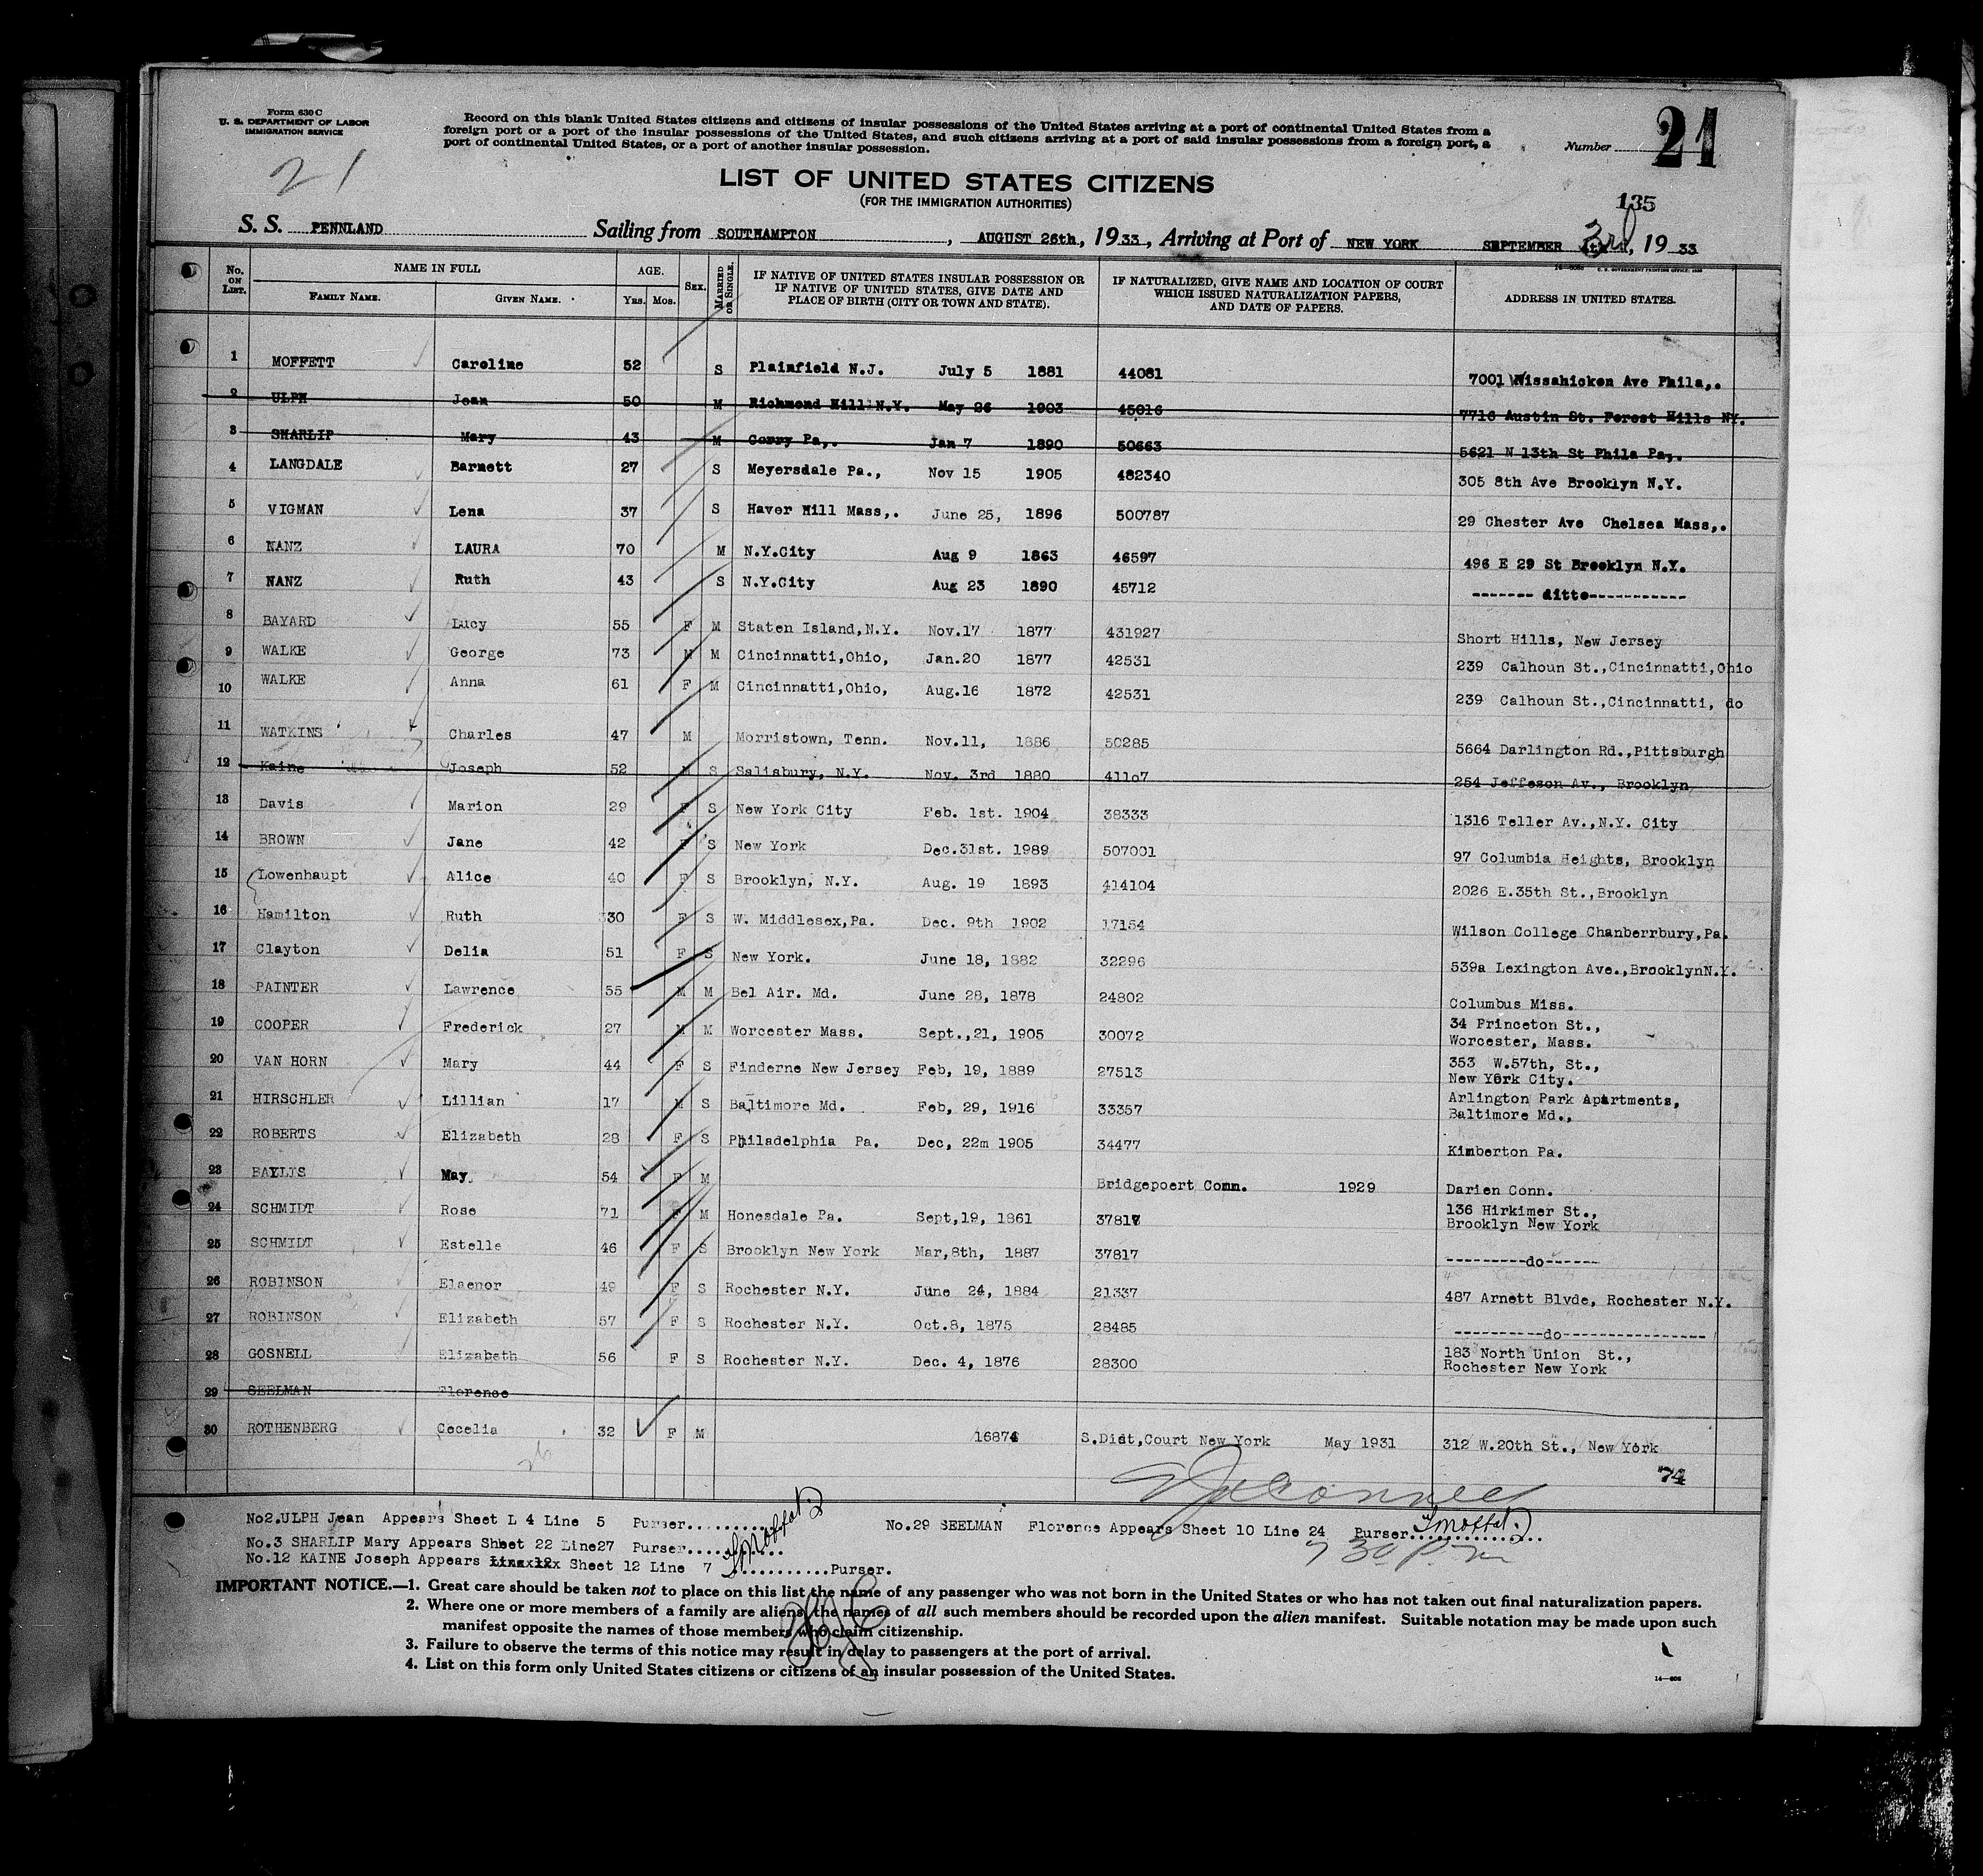 Form 630 C
U. S. DEPARTMENT OF LABOR
IMMIGRATION SERVICE
21
Record on this blank United States citizens and citizens of insular possessions of the United States arriving at a port of continental United States from a
foreign port or a port of the insular possessions of the United States, and such citizens arriving at a port of said insular possessions from a foreign port, a
port of continental United States, or a port of another insular possession.
Number 21
LIST OF UNITED STATES CITIZENS
(FOR THE IMMIGRATION AUTHORITIES)
135
S. S. PENNLAND Sailing from SOUTHAMPTON, AUGUST 26th, 1933, Arriving at Port of NEW YORK SEPTEMBER 3rd, 1933
No. ON LIST. NAME IN FULL FAMILY NAME. GIVEN NAME. AGE. YRS. MOS. SEX. MARRIED OR SINGLE. IF NATIVE OF UNITED STATES INSULAR POSSESSION OR IF NATIVE OF UNITED STATES, GIVE DATE AND PLACE OF BIRTH (CITY OR TOWN AND STATE). IF NATURALIZED, GIVE NAME AND LOCATION OF COURT WHICH ISSUED NATURALIZATION PAPERS, AND DATE OF PAPERS. ADDRESS IN UNITED STATES.
1 MOFFETT Caroline 52 S Plainfield N.J. July 5 1881 44081 7001 Wissahicken Ave Phila,.
2 ULPH Jean 50 M Richmond Hill N.Y. May 26 1903 45016 7716 Austin St. Forest Hills NY.
3 SHARLIP Mary 43 M Corry Pa,. Jan 7 1890 50663 5621 N 13th St Phila Pa,.
4 LANGDALE Barnett 27 S Meyersdale Pa., Nov 15 1905 482340 305 8th Ave Brooklyn N.Y.
5 VIGMAN Lena 37 S Haver Hill Mass,. June 25, 1896 500787 29 Chester Ave Chelsea Mass,.
6 NANZ LAURA 70 M N.Y.City Aug 9 1863 46597 496 E 29 St Brooklyn N.Y.
7 NANZ Ruth 43 S N.Y.City Aug 23 1890 45712 ------- ditto-----------
8 BAYARD Lucy 55 F M Staten Island,N.Y. Nov.17 1877 431927 Short Hills, New Jersey
9 WALKE George 73 M M Cincinnatti,Ohio, Jan.20 1877 42531 239 Calhoun St.,Cincinnatti,Ohio
10 WALKE Anna 61 F M Cincinnatti,Ohio, Aug.16 1872 42531 239 Calhoun St.,Cincinnatti, do
11 WATKINS Charles 47 M Morristown, Tenn. Nov.11, 1886 50285 5664 Darlington Rd.,Pittsburgh
12 Kaine Joseph 52 M S Salisbury, N.Y. Nov. 3rd 1880 41107 254 Jeffeson Av., Brooklyn
13 Davis Marion 29 F S New York City Feb. 1st. 1904 38333 1316 Teller Av.,N.Y. City
14 BROWN Jane 42 F S New York Dec.31st. 1989 507001 97 Columbia Heights, Brooklyn
15 Lowenhaupt Alice 40 F S Brooklyn, N.Y. Aug. 19 1893 414104 2026 E.35th St.,Brooklyn
16 Hamilton Ruth 30 F S W. Middlesex,Pa. Dec. 9th 1902 17154 Wilson College Chanberrbury,Pa.
17 Clayton Delia 51 F S New York. June 18, 1882 32296 539a Lexington Ave.,BrooklynN.Y.
18 PAINTER Lawrence 55 M M Bel Air. Md. June 28, 1878 24802 Columbus Miss.
19 COOPER Frederick 27 M M Worcester Mass. Sept.,21, 1905 30072 34 Princeton St.,
Worcester, Mass.
20 VAN HORN Mary 44 F S Finderne New Jersey Feb, 19, 1889 27513 353 W.57th, St.,
New York City.
21 HIRSCHLER Lillian 17 M S Baltimore Md. Feb, 29, 1916 33357 Arlington Park Apartments,
Baltimore Md.,
22 ROBERTS Elizabeth 28 F S Philadelphia Pa. Dec, 22m 1905 34477 Kimberton Pa.
23 BAYLIS May 54 F M Bridgepoert Conn. 1929 Darien Conn.
24 SCHMIDT Rose 71 F M Honesdale Pa. Sept,19, 1861 37817 136 Hirkimer St.,
Brooklyn New York
25 SCHMIDT Estelle 46 F S Brooklyn New York Mar,8th, 1887 37817 ----------do-------
26 ROBINSON Elaenor 49 F S Rochester N.Y. June 24, 1884 21337 487 Arnett Blvde, Rochester N.Y.
27 ROBINSON Elizabeth 57 F S Rochester N.Y. Oct.8, 1875 28485 ----------do----------------
28 GOSNELL Elizabeth 56 F S Rochester N.Y. Dec. 4, 1876 28300 183 North Union St.,
Rochester New York
29 SEELMAN Florence
30 ROTHENBERG Cecelia 32 F M 16874 S.Dist,Court New York May 1931 312 W.20th St., New York
26
74
No2.ULPH Jean Appears Sheet L 4 Line 5 Purser............
No.29 SEELMAN Florence Appears Sheet 10 Line 24 Purser..............
No.3 SHARLIP Mary Appears Sheet 22 Line27 Purser............
7 30 P.m
No.12 KAINE Joseph Appears Sheet 12 Line 7 ............Purser.
IMPORTANT NOTICE.—1. Great care should be taken not to place on this list the name of any passenger who was not born in the United States or who has not taken out final naturalization papers.
2. Where one or more members of a family are aliens, the names of all such members should be recorded upon the alien manifest. Suitable notation may be made upon such
manifest opposite the names of those members who claim citizenship.
3. Failure to observe the terms of this notice may result in delay to passengers at the port of arrival.
4. List on this form only United States citizens or citizens of an insular possession of the United States.